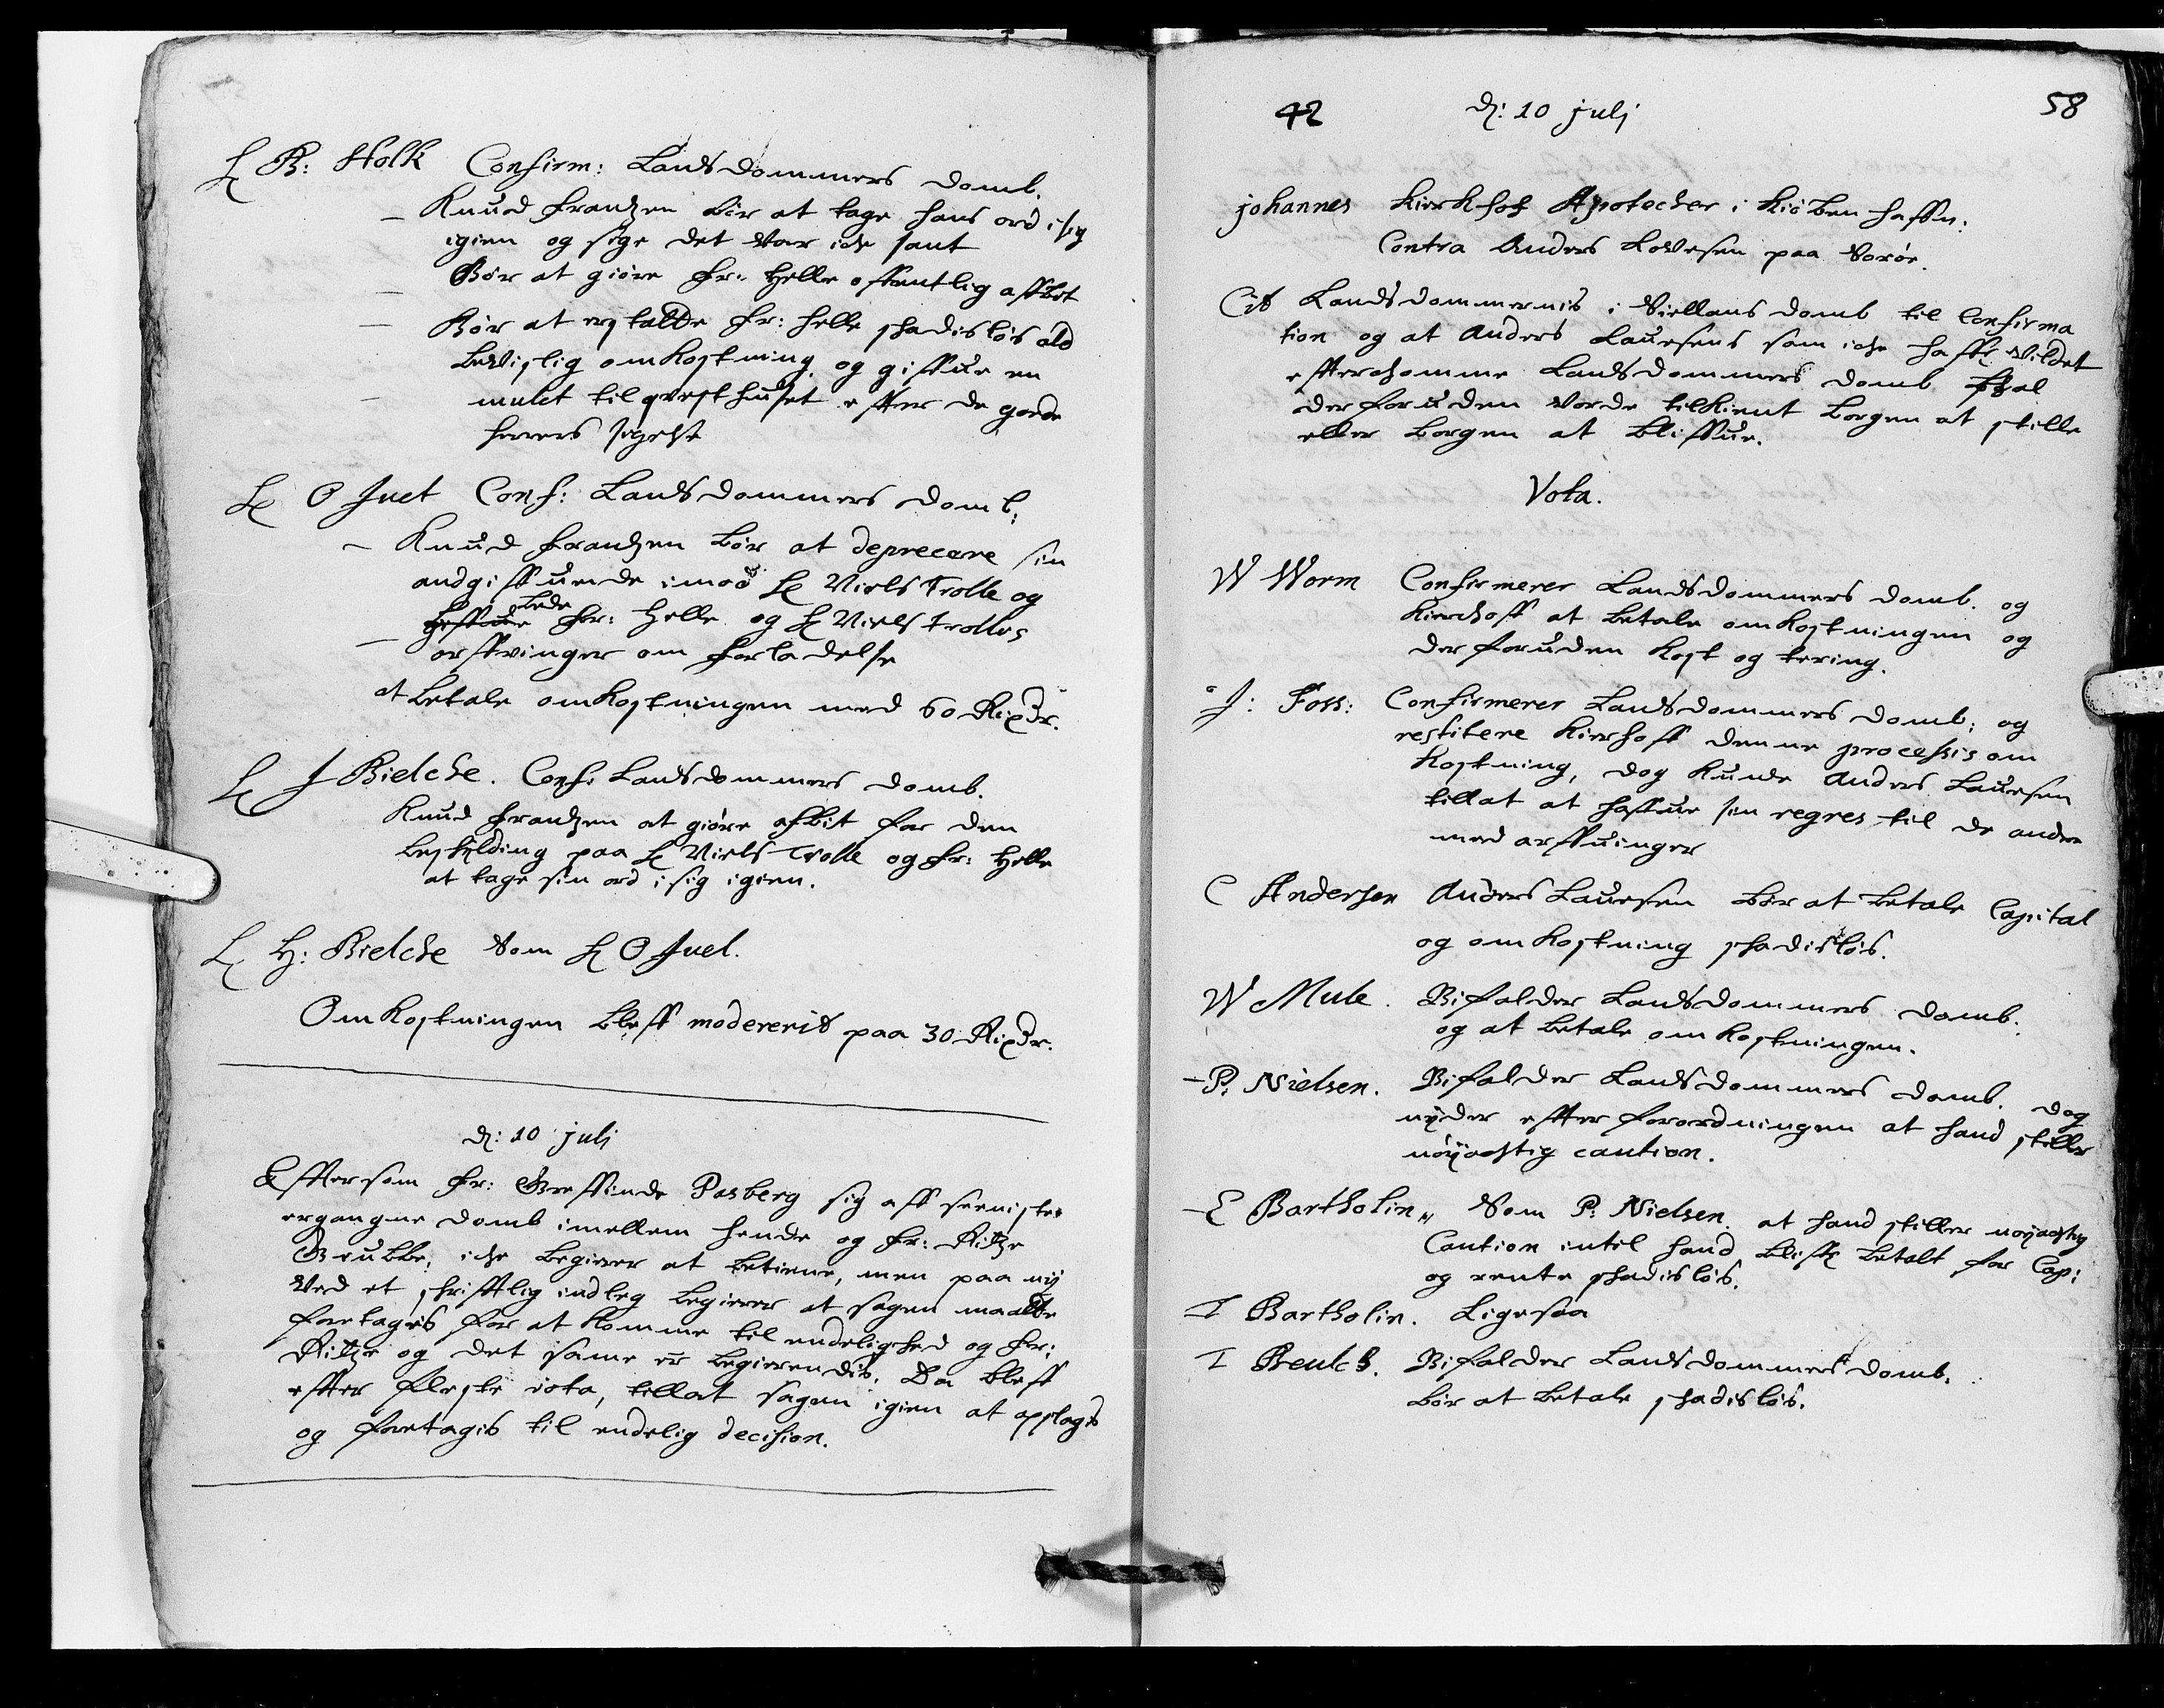 H B: Holk Confirm: Landsdommers domb.
— Knud frandzen bör at tage hans ord i sig
igien og sige det var iche sant
— Bör at giöre fr: Helle offentlig affbet
— Bör at erstatte fr: Helle schadislös ald
bevislig omkostning, og giffue en
— mulct til qvesthuset effter de goede
herrers sigelse
H O Juel Conf: Landsdommers domb;
— Knud frandzen bör at deprecere sin
andgiffuende imod H Niels Trolle og
bede
fr: Helle og H Niels Trolles
— arffvinger om forladelse
at betale omkostningen med 60 Rixdr.
H J Bielche. Conf: Landsdommers domb.
Knud frandzen at giöre afbit for den
beskylding paa H Niels Trolle og fr: Helle
at tage sin ord i sig igien.
H H: Bielche Som H O Juel.
Omkostningen bleff modererit paa 30 Rixdr.
d: 10 julj
Effter som fr: Greffinde Pasberg sig aff seeniste
ergangne domb imellem hende og fr: Ritze
Grubbe, iche begierer at betiene, men paa nÿ
ved et schrifftlig indleg begierer at sagen maatte
foretagis for at komme til endelighed og fr:
Ritze og det same er begierendis. Da bleff
effter fleste vota, tillat sagen igien at optagis
og foretagis til endelig decision.
42 d: 10 julj 58
johannes Kierkhof Apotecher i Kiöbenhaffn.
Contra Anders Lovesen paa Norör.
Cit Landsdommernis i Siellans domb til Confirma
tion og at Anders Lauesens som iche haffr vildet
effterchomme Landsdommers domb skal
derforuden vorde tilkient borgen at stille
eller borgen at bliffue.
Vota.
W Worm Confirmerer Landsdommers domb. og
Kierchoff at betale omkostningen og
derforuden kost og tering.
J: Foss: Confirmerer Landsdommers domb; og
restitere Kierhoff denne processis om
kostning, dog kunde Anders Lauesen
tillat at haffue sin regres til de andre
med arffuinger
C Andersen Anders Lauesen bör at betale Capital
og omkostning schadislös.
W Mule. Bifalder Landsdommers domb:
og at betale omkostningen.
— P: Nielsen. Bifalder Landsdommers domb. dog
nÿder effter forordningen at hand stiller
nöÿachtig caution.
— E Bartholin Som P: Nielsen. at hand stiller nöÿachtig
Caution intil hand bliffr betalt for Cap:
og rente schadislös.
T Bartholin. Ligesaa
T Reulch. Bifalder Landsdommers domb.
bör at betale schadislös.